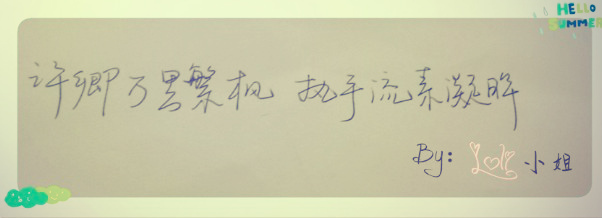 HELLO
SUMMER
许卿万里繁机 执手流素凝眸
By: Loli 小姐